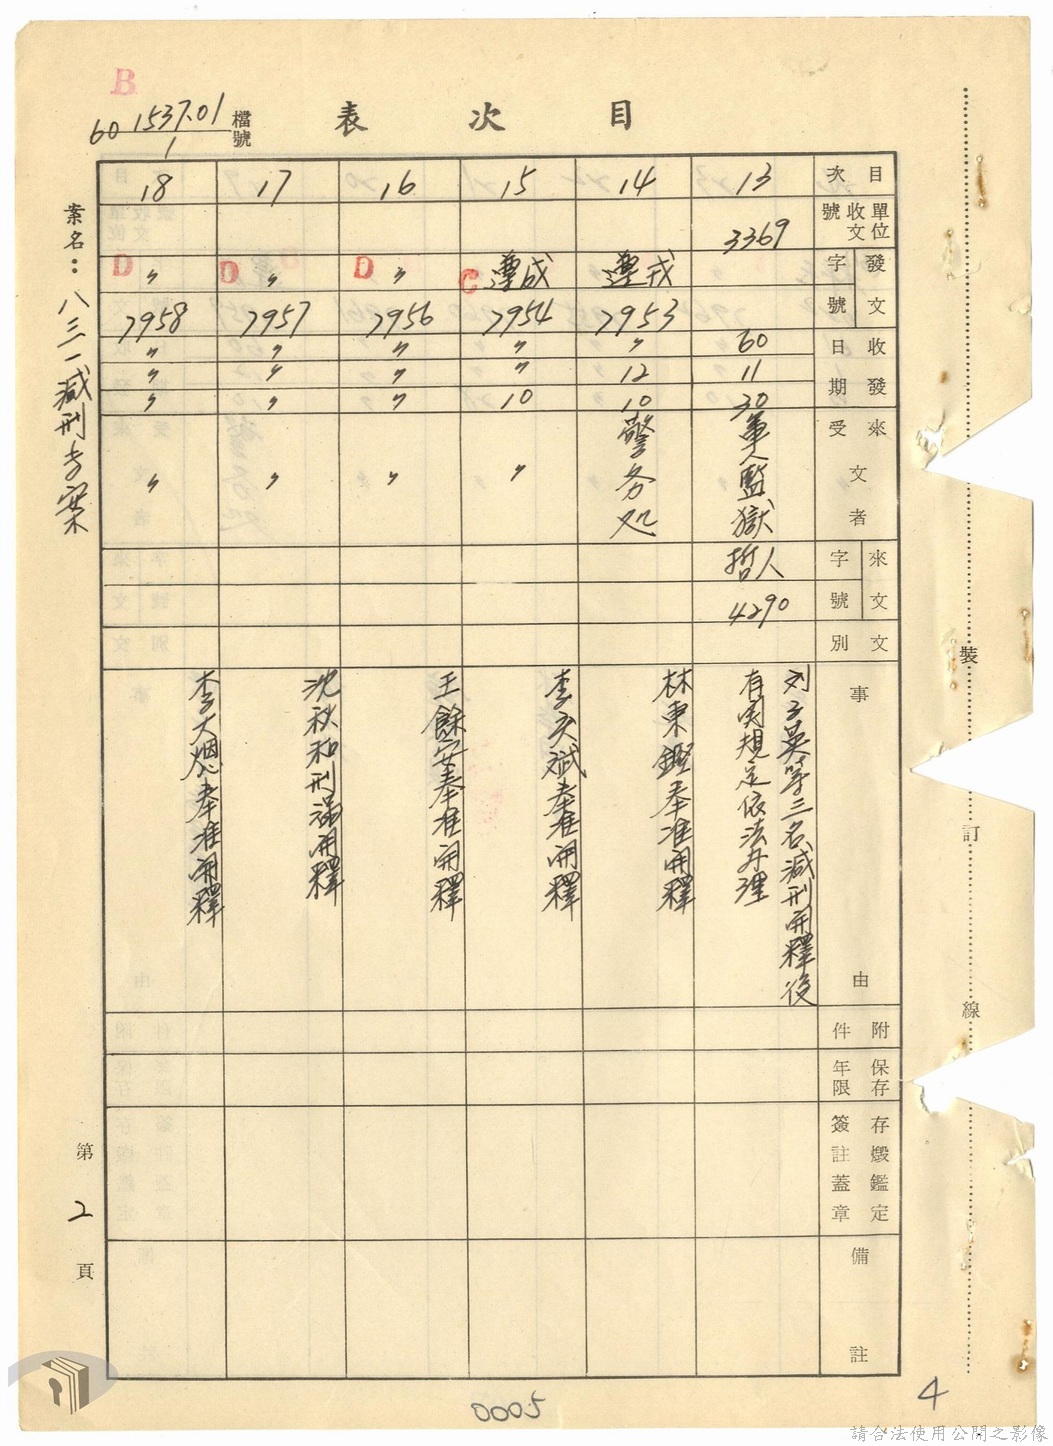 目次表
檔號
60 1537.01
1
案名：八三一減刑专案
目次
單位收文號
發文字號
收發日期
來文受文者
來文字號
文別
事由
附件
保存年限
存燬鑑定簽註蓋章
備註
13
3369
60
11
30
軍人監獄
哲人
4290
刘子英等三名減刑開釋後
有関規定依法办理
14
7953
〃
12
10
警务处
林東鏗奉准開釋
15
C
7954
〃
〃
10
〃
奉准開釋
16
D
〃
7956
〃
〃
〃
〃
王餘安奉准開釋
17
D
〃
7957
〃
〃
〃
〃
沈秋和刑滿開釋
18
D
〃
7958
〃
〃
〃
〃
奉准開釋
B
裝訂線
第2頁
0005
4
請合法使用公開之影像